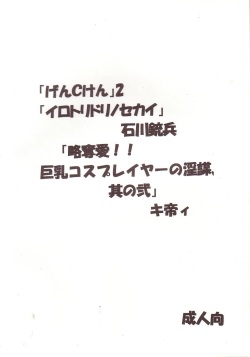 「げんCけん」2
「イロトリドリノセカイ」
石川銃兵
「略奪愛！！
巨乳コスプレイヤーの淫謀、
其の弐」
キ帝ィ
成人向